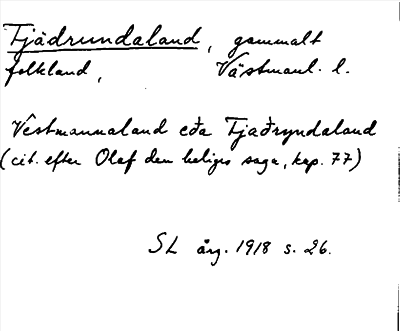 Tjädrundaland, gammalt
folkland, Västmanl. l.
Vestmannaland eða Tjaðryndaland
(cit. efter Olof den heliges saga, kap. 77)
SL årg. 1918 s. 26.